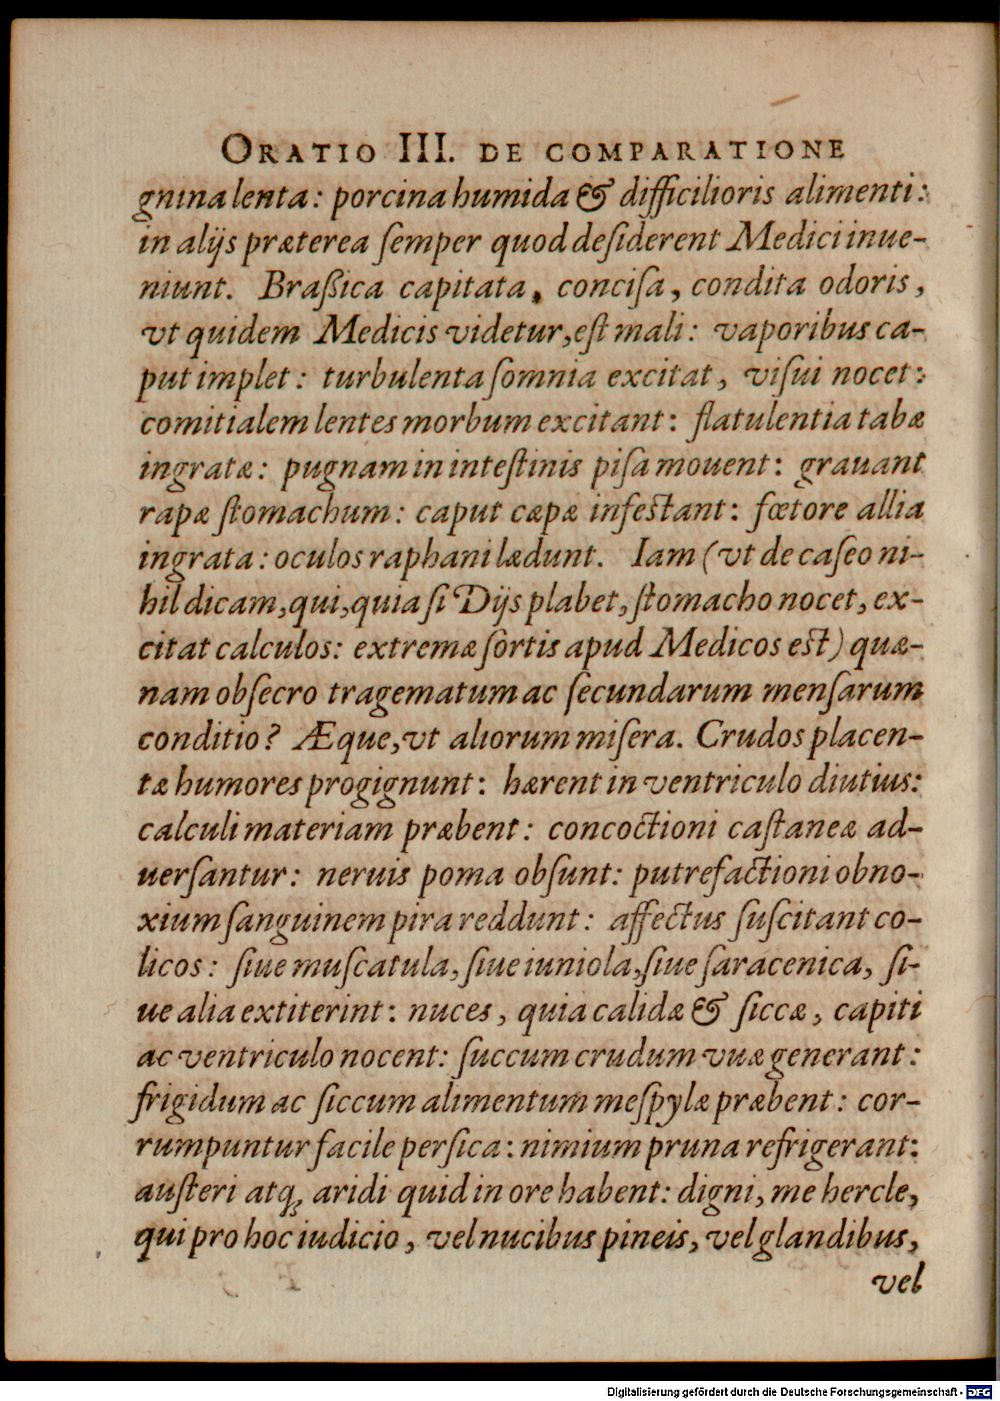 ORATIO III. DE COMPARATIONE
gnina lenta: porcina humida & difficilioris alimenti:
in alijs præterea ſemper quod deſiderent Medici inue-
niunt. Braßica capitata, conciſa, condita odoris,
vt quidem Medicis videtur, eſt mali: vaporibus ca-
put implet: turbulenta ſomnia excitat, viſui nocet:
comitialem lentes morbum excitant: flatulentia tabæ
ingratæ: pugnam in inteſtinis piſa mouent: grauant
rapæ ſtomachum: caput cæpæ infeſtant: fœtore allia
ingrata: oculos raphani lædunt. Iam (vt de caſeo ni-
hil dicam, qui, quia ſi Dijs plabet, ſtomacho nocet, ex-
citat calculos: extremæ ſortis apud Medicos eſt) quæ-
nam obſecro tragematum ac ſecundarum menſarum
conditio? Æque, vt aliorum miſera. Crudos placen-
tæ humores progignunt: hærent in ventriculo diutius:
calculi materiam præbent: concoctioni caſtaneæ ad-
uerſantur: neruis poma obſunt: putrefactioni obno-
xium ſanguinem pira reddunt: affectus ſuſcitant co-
licos: ſiue muſcatula, ſiue iuniola, ſiue ſaracenica, ſi-
ue alia extiterint: nuces, quia calidæ & ſiccæ, capiti
ac ventriculo nocent: ſuccum crudum vuæ generant:
frigidum ac ſiccum alimentum meſpylæ præbent: cor-
rumpuntur facile perſica: nimium pruna refrigerant:
auſteri atq; aridi quid in ore habent: digni, me hercle,
qui pro hoc iudicio, vel nucibus pineis, vel glandibus,
vel
Digitalisierung gefördert durch die Deutsche Forschungsgemeinschaft - DFG